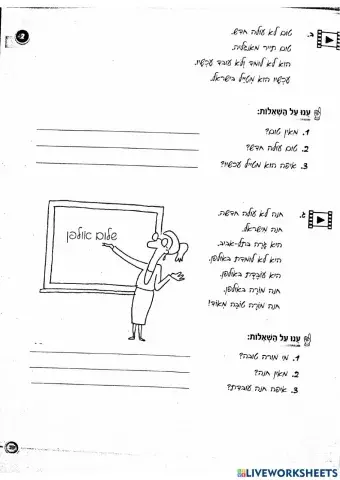 2
ב. טום לא עולה חדש.
טום תייר מאנגליה.
הוא לא לומד ולא עובד עכשיו.
עכשיו הוא מטייל בישראל.
ענו על השאלות:
1. מאין טום?
2. טום עולה חדש?
3. איפה הוא מטייל עכשיו?
ג. חנה לא עולה חדשה.
חנה מישראל.
היא גרה בתל-אביב.
היא לא לומדת באולפן.
היא עובדת באולפן.
חנה מורה באולפן.
חנה מורה טובה מאוד!
שלום אולפן
ענו על השאלות:
1. מי מורה טובה?
2. מאין חנה?
3. איפה חנה עובדת?
LIVEWORKSHEETS